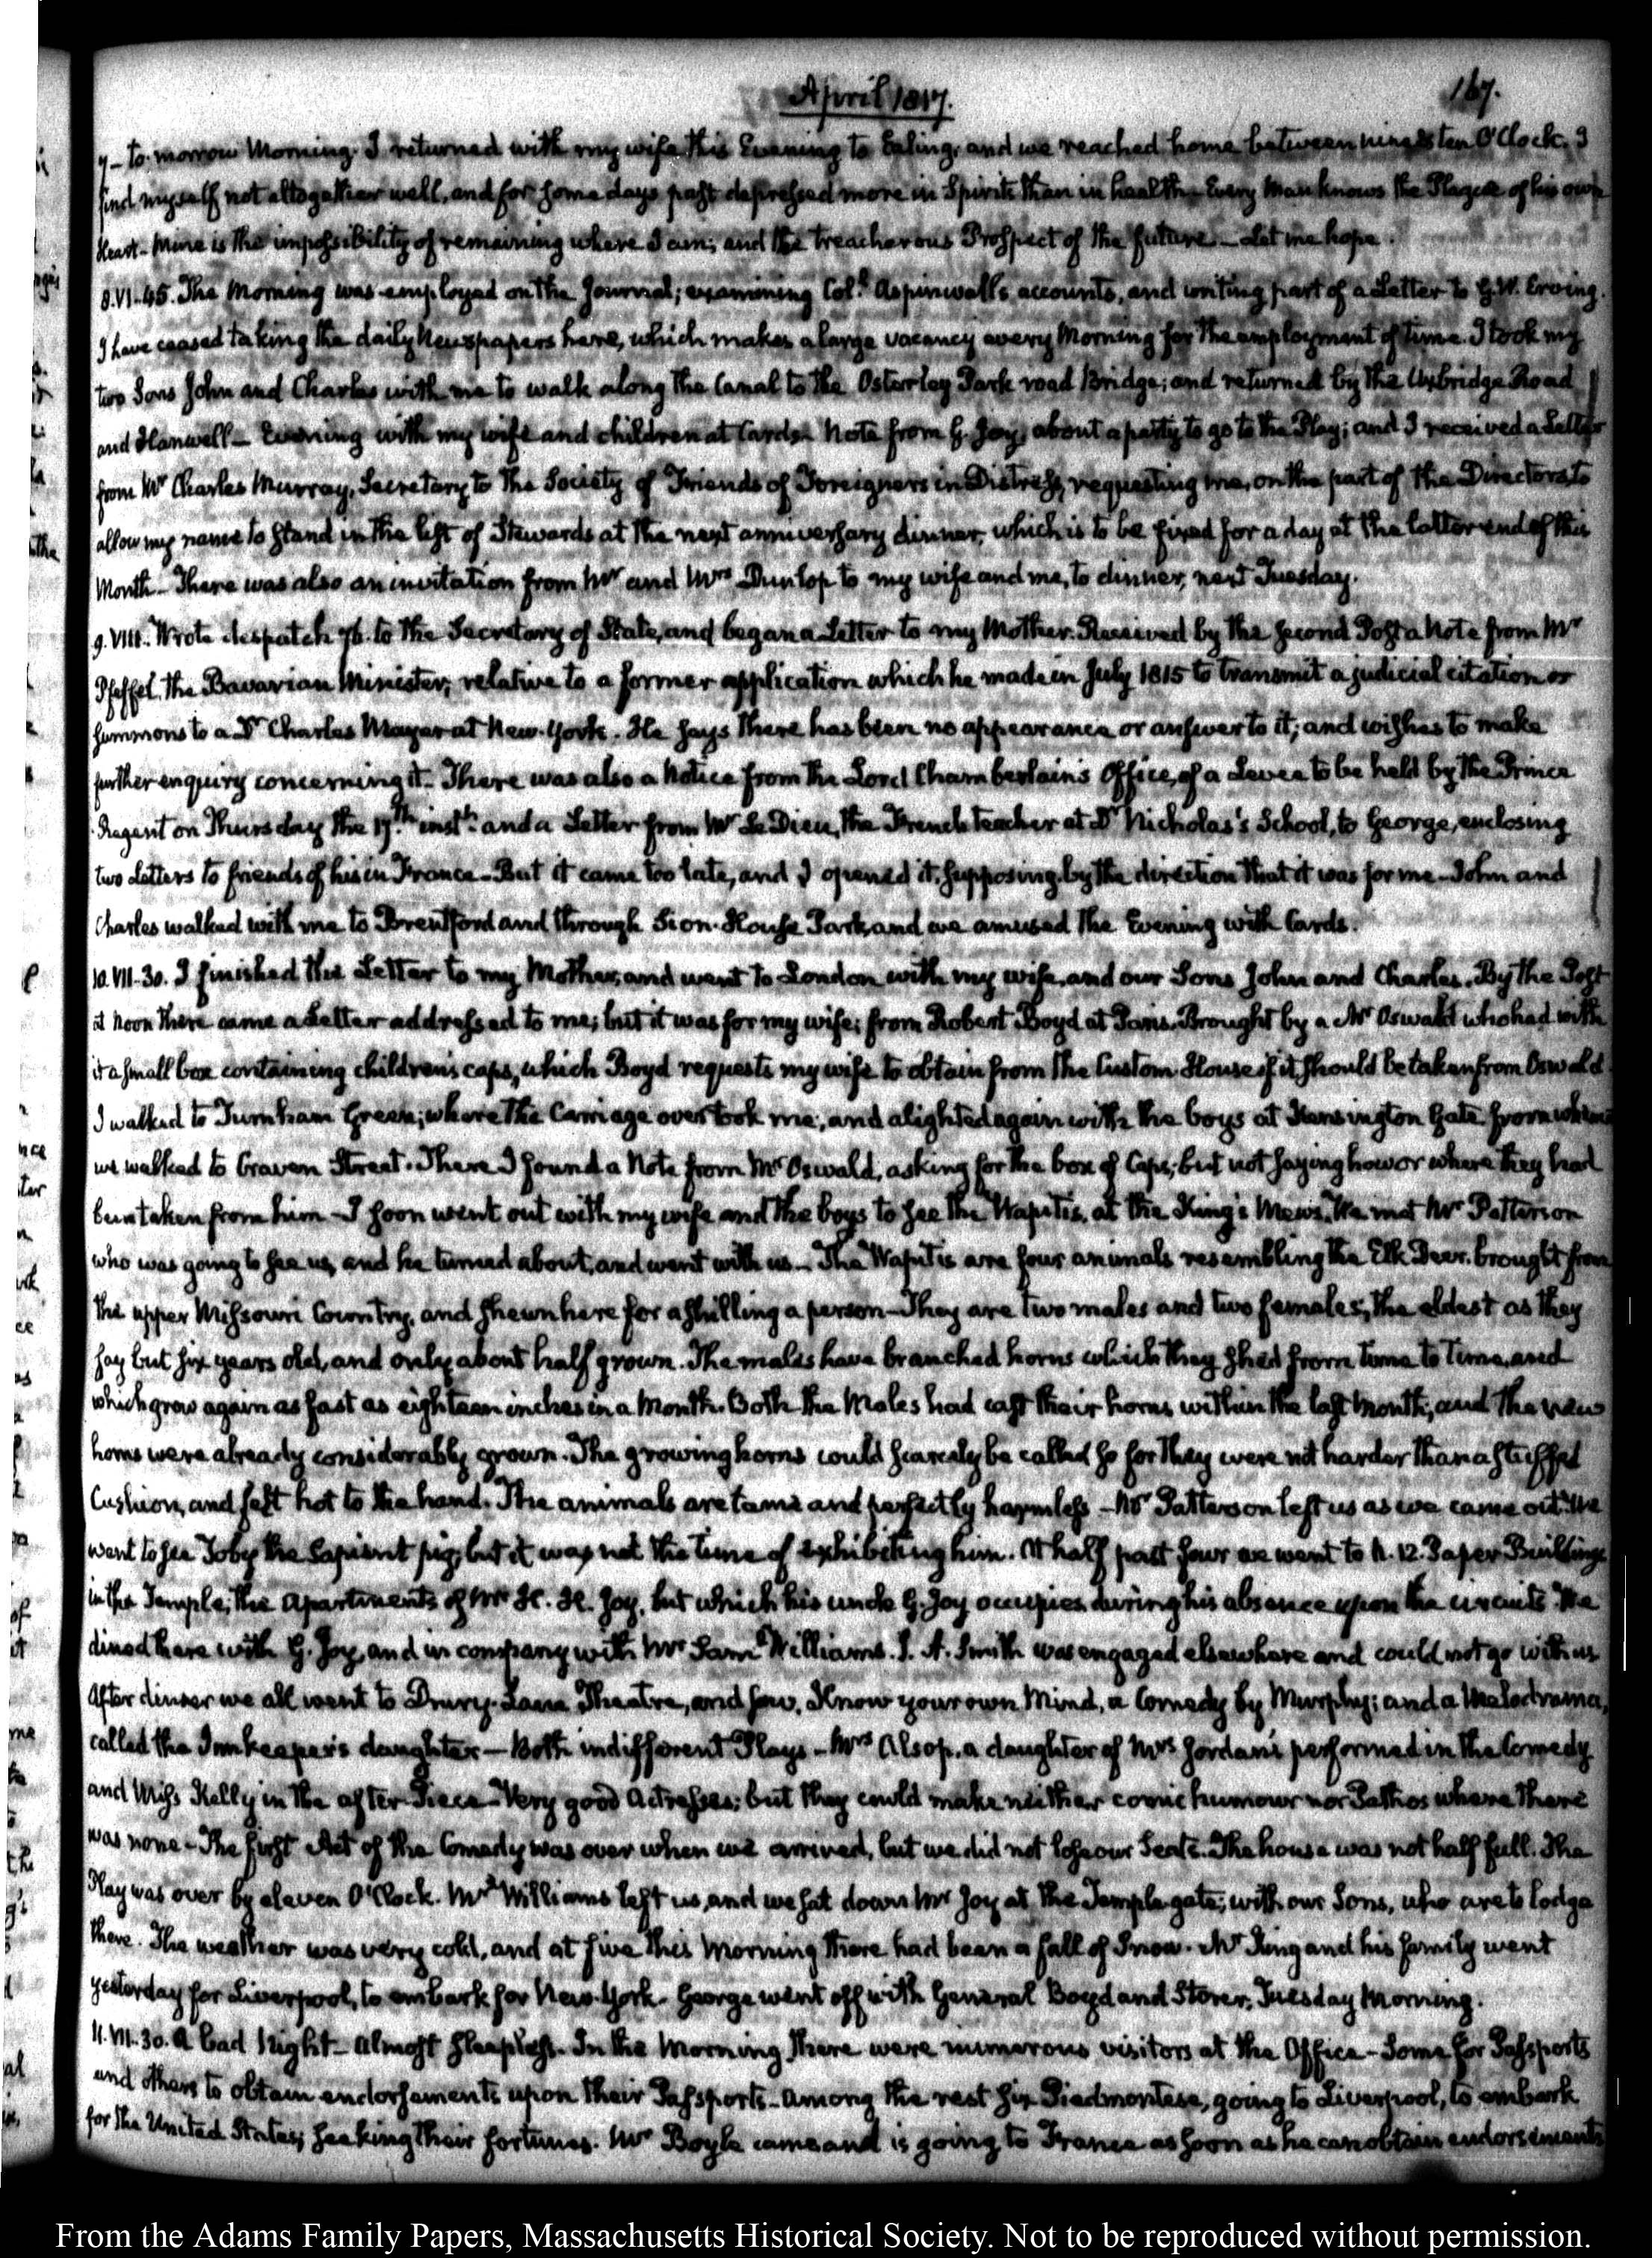 April 1817.
167.
7 — to-morrow Morning. I returned with my wife this Evening to Ealing, and we reached home between nine & ten O'Clock. I
find myself not altogether well, and for some days past depressed more in Spirits than in health — Every Man knows the Plague of his own
Heart — Mine is the impossibility of remaining where I am; and the treacherous Prospect of the future — Let me hope.
8. VI-45. The Morning was employed on the Journal; examining Col.l Aspinwall's accounts, and writing part of a Letter to G. W. Erving.
I have ceased taking the daily Newspapers here, which makes a large vacancy every Morning for the employment of time. I took my
two Sons John and Charles with me to walk along the Canal to the Osterley Park road Bridge; and returned by the Uxbridge Road
and Hanwell — Evening with my wife and children at Cards — Note from G. Joy, about a party to go to the Play; and I received a Letter
from Mr Charles Murray, Secretary to the Society of Friends of Foreigners in Distress, requesting me, on the part of the Directors to
allow my name to stand in the list of Stewards at the next anniversary dinner, which is to be fixed for a day at the latter end of this
Month — There was also an invitation from Mr and Mrs Dunlop to my wife and me, to dinner, next Tuesday.
9. VIII. Wrote despatch 76. to the Secretary of State, and began a Letter to my Mother. Received by the second Post a Note from Mr
Pfeffel, the Bavarian Minister, relative to a former application which he made in July 1815 to transmit a judicial citation or
summons to a Dr Charles Mayer at New-York. He says there has been no appearance or answer to it; and wishes to make
further enquiry concerning it — There was also a Notice from the Lord Chamberlain's Office, of a Levee to be held by the Prince
Regent on Thursday the 17.th inst.t and a Letter from Mr Le Dieu, the French teacher at Dr Nicholas's School, to George, enclosing
two Letters to friends of his in France — But it came too late, and I opened it, supposing by the direction that it was for me — John and
Charles walked with me to Brentford and through Sion-House Park, and we amused the Evening with Cards.
10. VII-30. I finished the Letter to my Mother, and went to London with my wife, and our Sons John and Charles. By the Post
at Noon there came a Letter addressed to me; but it was for my wife; from Robert Boyd at Paris. Brought by a Mr Oswald who had with
it a small box containing children's caps, which Boyd requests my wife to obtain from the Custom-House if it should be taken from Oswald.
I walked to Turnham Green; where the Carriage overtook me; and alighted again with the boys at Kensington Gate from whence
we walked to Craven Street. There I found a Note from Mr Oswald, asking for the box of Caps; but not saying how or where they had
been taken from him — I soon went out with my wife and the boys to see the Wapitis, at the King's Mews. We met Mr Patterson
who was going to see us, and he turned about, and went with us — The Wapitis are four animals resembling the Elk Deer, brought from
the upper Missouri Country, and shewn here for a shilling a person — They are two males and two females; the eldest as they
say but six years old, and only about half grown. The males have branched horns which they shed from time to time, and
which grow again as fast as eighteen inches in a Month. Both the Males had cast their horns within the last Month; and the new
horns were already considerably grown. The growing horns could scarcely be called so for they were not harder than a stuffed
Cushion, and felt hot to the hand. The animals are tame and perfectly harmless — Mr Patterson left us as we came out. We
went to see Toby the Sapient pig; but it was not the time of exhibiting him. At half past four we went to N. 12. Paper Buildings
in the Temple; the Apartments of Mr H. H. Joy, but which his uncle G. Joy occupies during his absence upon the circuits. We
dined there with G. Joy, and in company with Mr Sam.l Williams. J. A. Smith was engaged elsewhere and could not go with us.
After dinner we all went to Drury-Lane Theatre, and saw, Know your own Mind, a Comedy by Murphy; and a Melodrama,
called the Innkeeper's daughter — Both indifferent Plays — Mrs Alsop, a daughter of Mrs Jordan's performed in the Comedy
and Miss Kelly in the after-Piece — Very good Actresses; but they could make neither comic humour nor Pathos where there
was none — The first Act of the Comedy was over when we arrived, but we did not lose our Seats. The house was not half full. The
Play was over by eleven O'Clock. Mr Williams left us, and we sat down Mr Joy at the Temple gate; with our Sons, who are to lodge
there. The weather was very cold, and at five this Morning there had been a fall of Snow. Mr King and his family went
yesterday for Liverpool, to embark for New-York. George went off with General Boyd and Storer, Tuesday Morning.
11. VII-30. A bad Night — almost sleepless. In the Morning there were numerous visitors at the Office — Some for Passports
and others to obtain endorsements upon their Passports — Among the rest six Piedmontese, going to Liverpool, to embark
for the United States; seeking their fortunes. Mr Boyle came and is going to France as soon as he can obtain endorsements
From the Adams Family Papers, Massachusetts Historical Society. Not to be reproduced without permission.